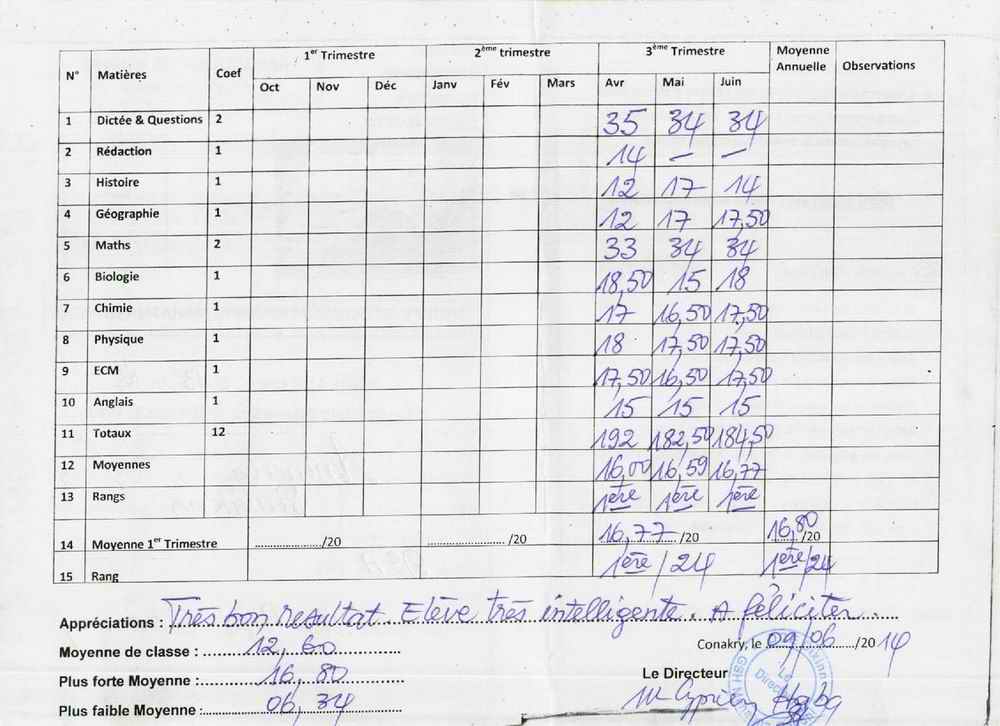 N° Matières Coef 1er Trimestre 2ème trimestre 3ème Trimestre Moyenne Annuelle Observations
Oct Nov Déc Janv Fév Mars Avr Mai Juin
1 Dictée & Questions 2 35 34 34
2 Rédaction 1 14 — —
3 Histoire 1 12 17 14
4 Géographie 1 12 17 17,50
5 Maths 2 33 34 34
6 Biologie 1 18,50 15 18
7 Chimie 1 17 16,50 17,50
8 Physique 1 18 17,50 17,50
9 ECM 1 17,50 16,50 17,50
10 Anglais 1 15 15 15
11 Totaux 12 192 182,50 184,50
12 Moyennes 16,00 16,59 16,77
13 Rangs 1ère 1ère 1ère
14 Moyenne 1er Trimestre ........../20 ........../20 16,77 /20 16,80 /20
15 Rang 1ère/24 1ère/24
Appréciations : Très bon resultat. Elève très intelligente. A féliciter.
Moyenne de classe : 12,60
Conakry, le 09/06/2014
Plus forte Moyenne : 16,80
Le Directeur
Plus faible Moyenne : 06,34
Mr Cyprien